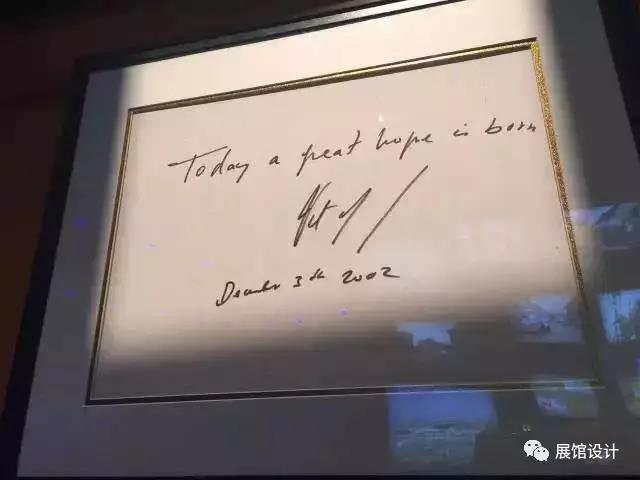 Today a great hope is born
December 3th 2002
展馆设计